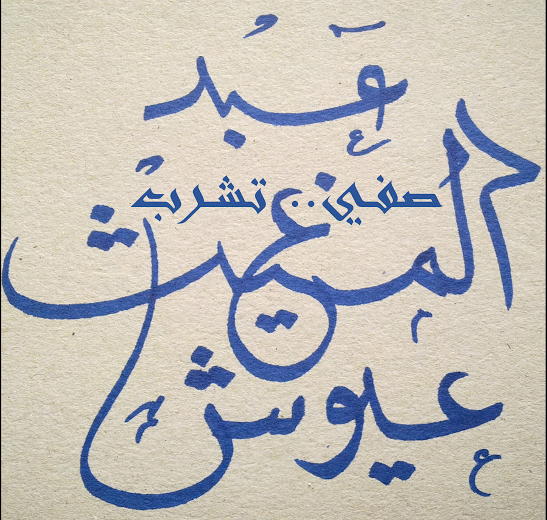 عبد
صفي.. تشرب
المغيث
عيوش